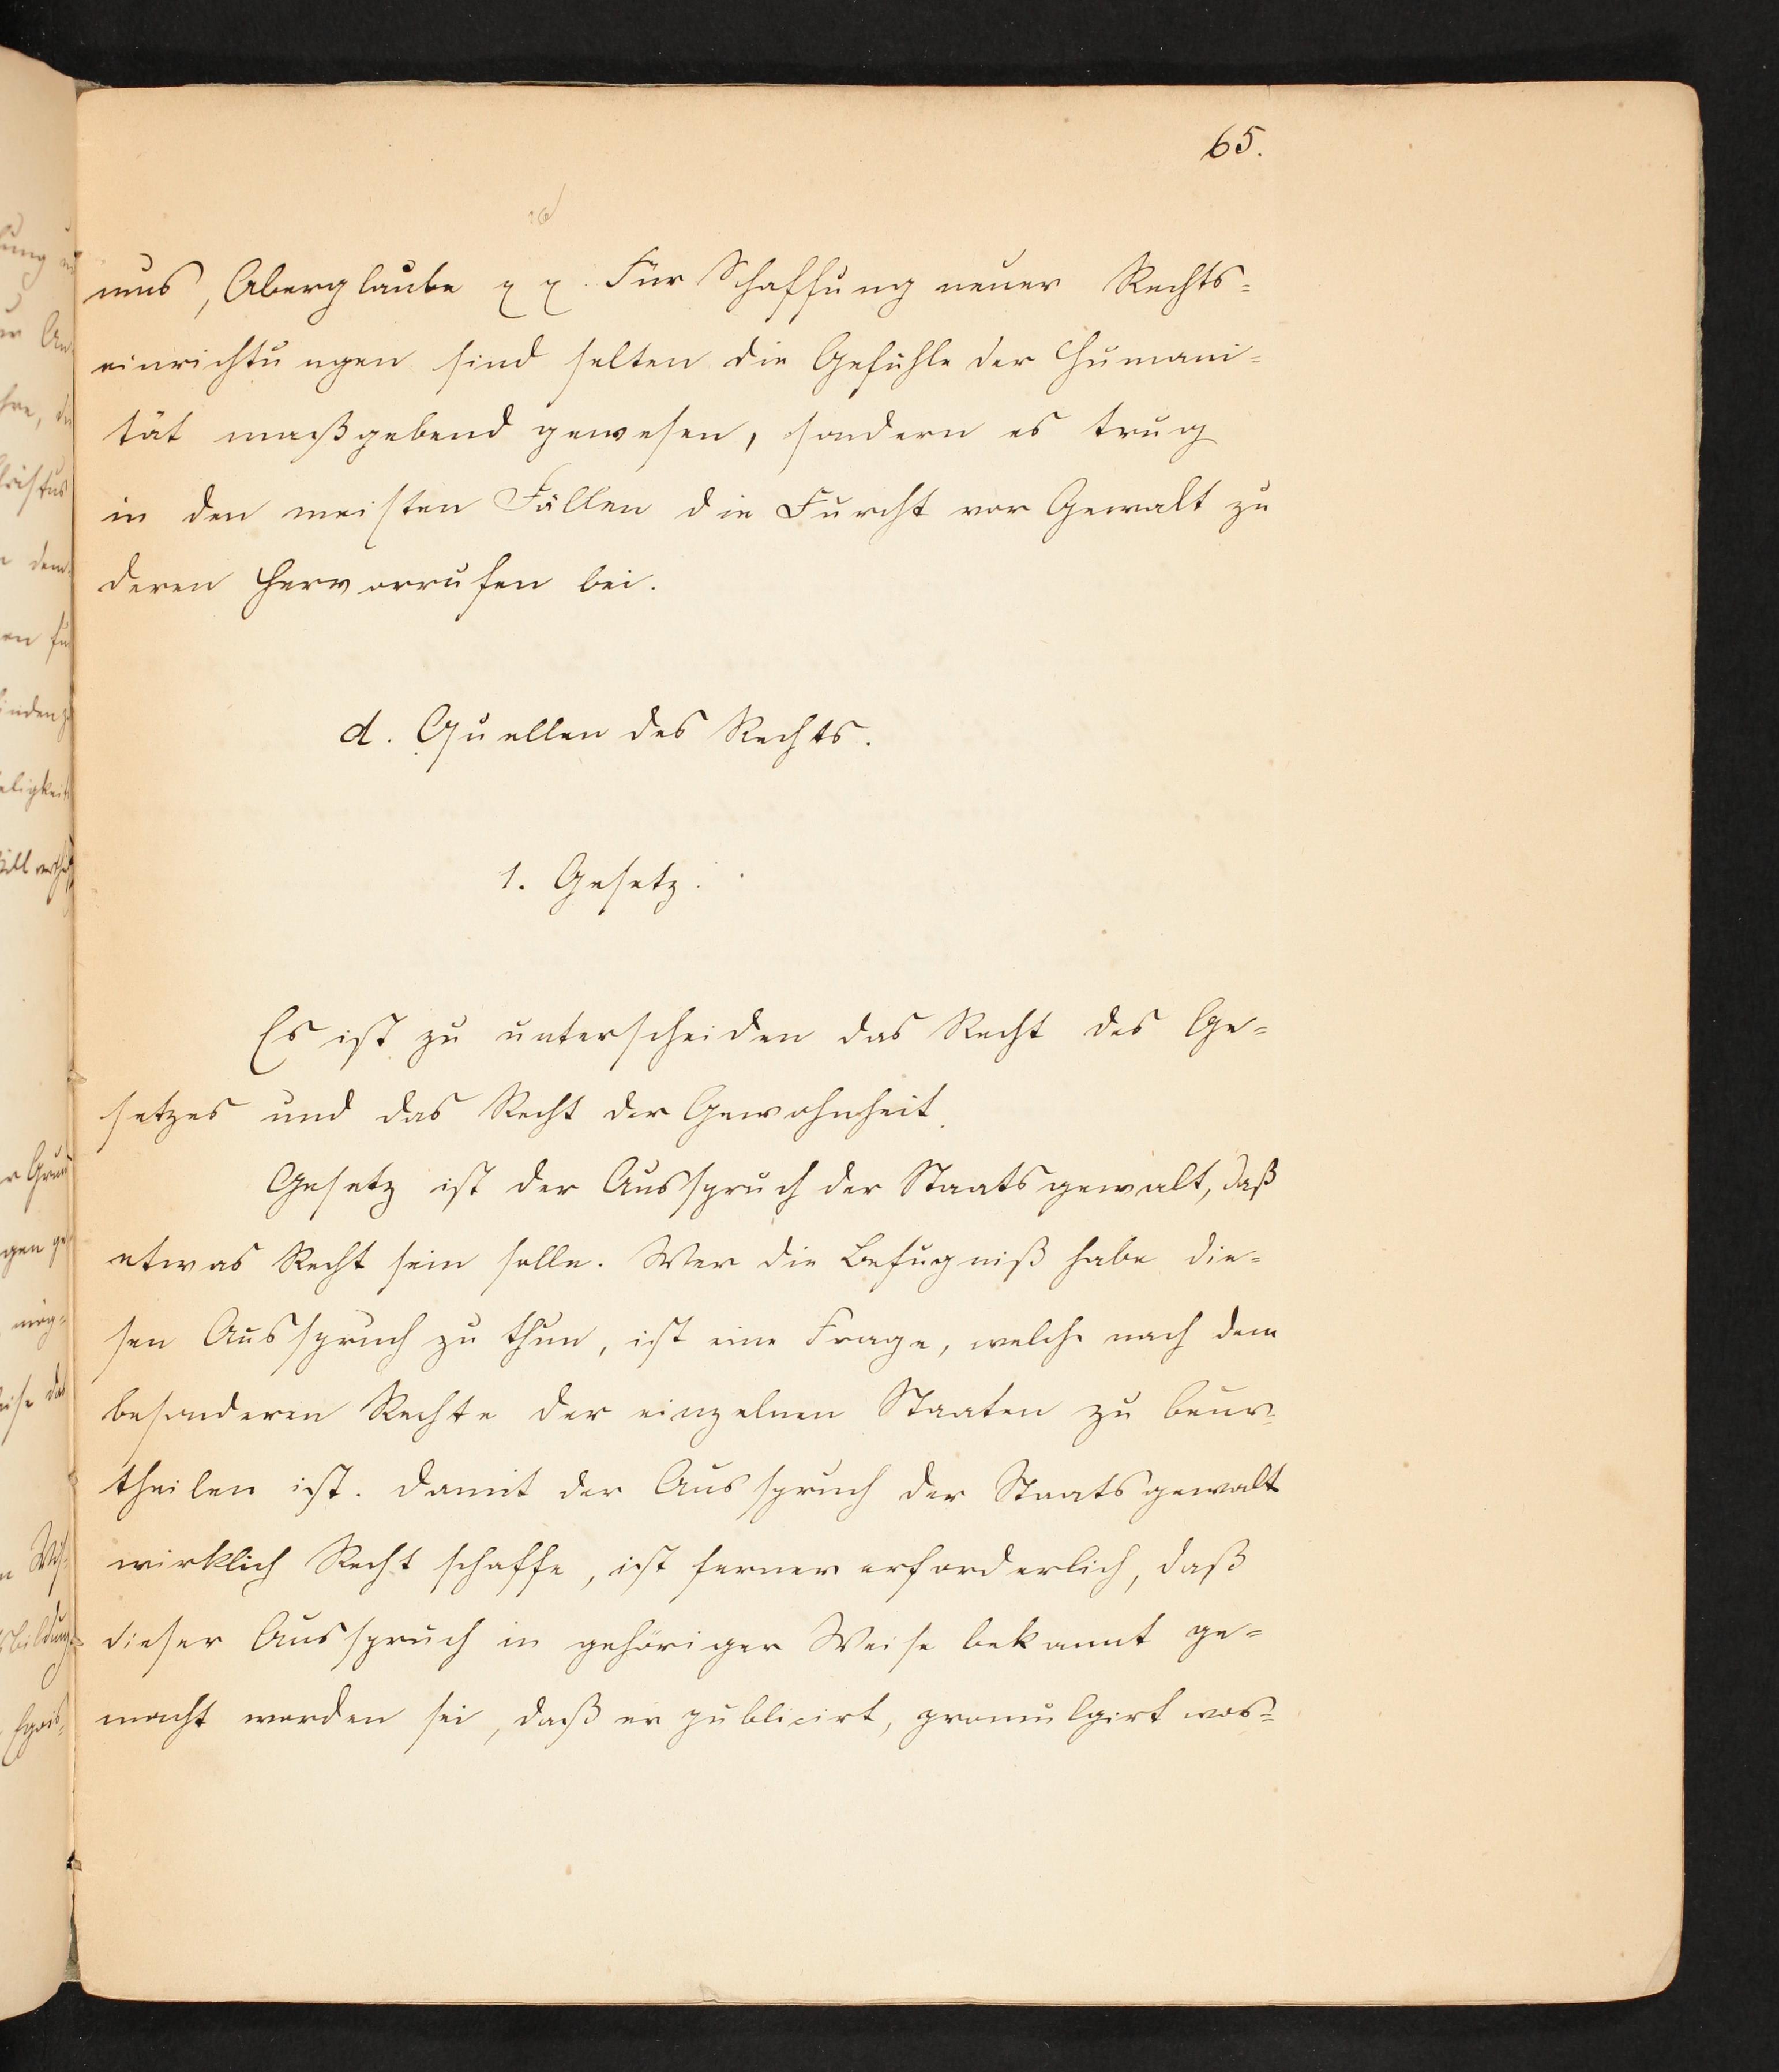 65.
mus, Aberglaube pp. Für Schaffung neuer Rechts=
einrichtungen sind selten die Gefühle der Humani=
tät maßgebend gewesen, sondern es trug
in den meisten Fällen die Furcht vor Gewalt zu
deren Hervorrufen bei.
d. Quellen des Rechts.
1. Gesetz.
Es ist zu unterscheiden das Recht des Ge=
setzes und das Recht der Gewohnheit.
Gesetz ist der Ausspruch der Staatsgewalt, daß
etwas Recht sein solle. Wer die Befugniß habe die=
sen Ausspruch zu thun, ist eine Frage, welche nach dem
besonderen Rechte der einzelnen Staaten zu beur=
theilen ist. Damit der Ausspruch der Staatsgewalt
wirklich Recht schaffe, ist ferner erforderlich, daß
dieser Ausspruch in gehöriger Weise bekannt ge=
macht worden sei, daß er publicirt, promulgirt wor=